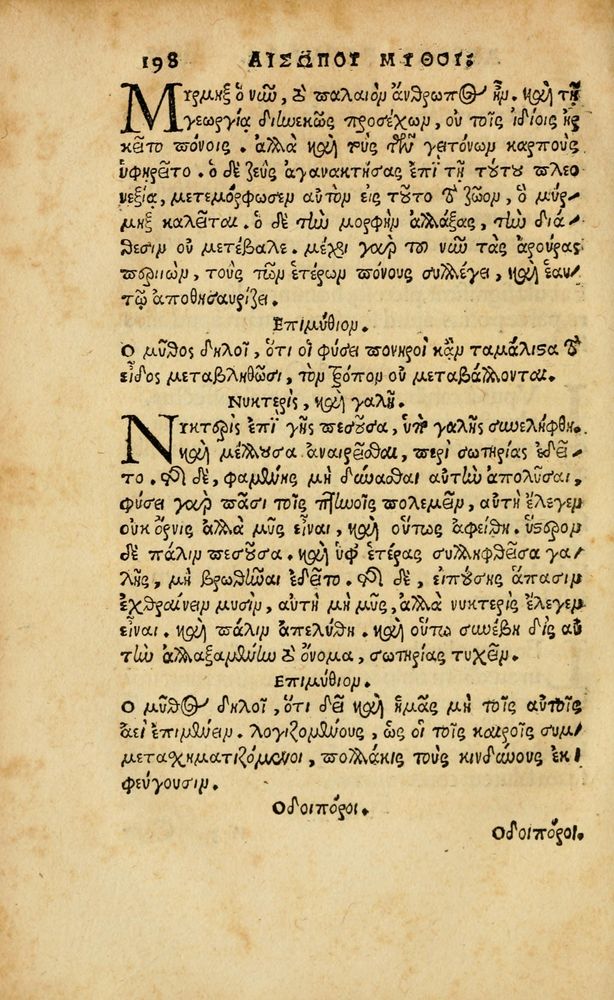 198 ΑΙΣΩΠΟΥ ΜΥΘΟΙ;
Μύρμηξ ὁ νῦν, τὸ παλαιὸν ἄνθρωπος ἦν. καὶ τῇ
γεωργίᾳ διηνεκῶς προσέχων, οὐ τοῖς ἰδίοις ἠρ
κεῖτο πόνοις. ἀλλὰ καὶ τοὺς τῶν γειτόνων καρποὺς
ὑφῃρεῖτο. ὁ δὲ ζεὺς ἀγανακτήσας ἐπὶ τῇ τούτου πλεο
νεξίᾳ, μετεμόρφωσεν αὐτὸν εἰς τοῦτο τὸ ζῶον, ὃ μύρ/
μηξ καλεῖται. ὁ δὲ τὴν μορφὴν ἀλλάξας, τὴν διά/
θεσιν οὐ μετέβαλε. μέχρι γὰρ τοῦ νῦν τὰς ἀρούρας
περιιὼν, τοὺς τῶν ἑτέρων πόνους συλλέγει, καὶ ἑαυ/
τῷ ἀποθησαυρίζει.
Ἐπιμύθιον.
Ὁ μῦθος δηλοῖ, ὅτι οἱ φύσει πονηροὶ κἂν ταμάλιστα τὸ
εἶδος μεταβληθῶσι, τὸν τρόπον οὐ μεταβάλλονται.
Νυκτερὶς, καὶ γαλῆ.
Νυκτερὶς ἐπὶ γῆς πεσοῦσα, ὑπὸ γαλῆς συνελήφθη.
καὶ μέλλουσα ἀναιρεῖσθαι, περὶ σωτηρίας ἐδεῖ/
το. τῆς δὲ, φαμένης μὴ δύνασθαι αὐτὴν ἀπολῦσαι,
φύσει γὰρ πᾶσι τοῖς πτηνοῖς πολεμεῖν, αὐτὴ ἔλεγεν
οὐκ ὄρνις ἀλλὰ μῦς εἶναι, καὶ οὕτως ἀφείθη. ὕστερον
δὲ πάλιν πεσοῦσα. καὶ ὑφ' ἑτέρας συλληφθεῖσα γα/
λῆς, μὴ βρωθῆναι ἐδεῖτο. τῆς δὲ, εἰπούσης ἅπασιν
ἐχθραίνειν μυσὶν, αὐτὴ μὴ μῦς, ἀλλὰ νυκτερὶς ἔλεγεν
εἶναι. καὶ πάλιν ἀπελύθη. καὶ οὕτω συνέβη δὶς αὐ
τὴν ἀλλαξαμένην τὸ ὄνομα, σωτηρίας τυχεῖν.
Ἐπιμύθιον.
Ὁ μῦθος δηλοῖ, ὅτι δεῖ καὶ ἡμᾶς μὴ τοῖς αὐτοῖς
ἀεὶ ἐπιμένειν. λογιζομένους, ὡς οἱ τοῖς καιροῖς συμ/
μετασχηματιζόμενοι, πολλάκις τοὺς κινδύνους ἐκ/
φεύγουσιν.
Ὁδοιπόροι.
Ὁδοιπόροι.